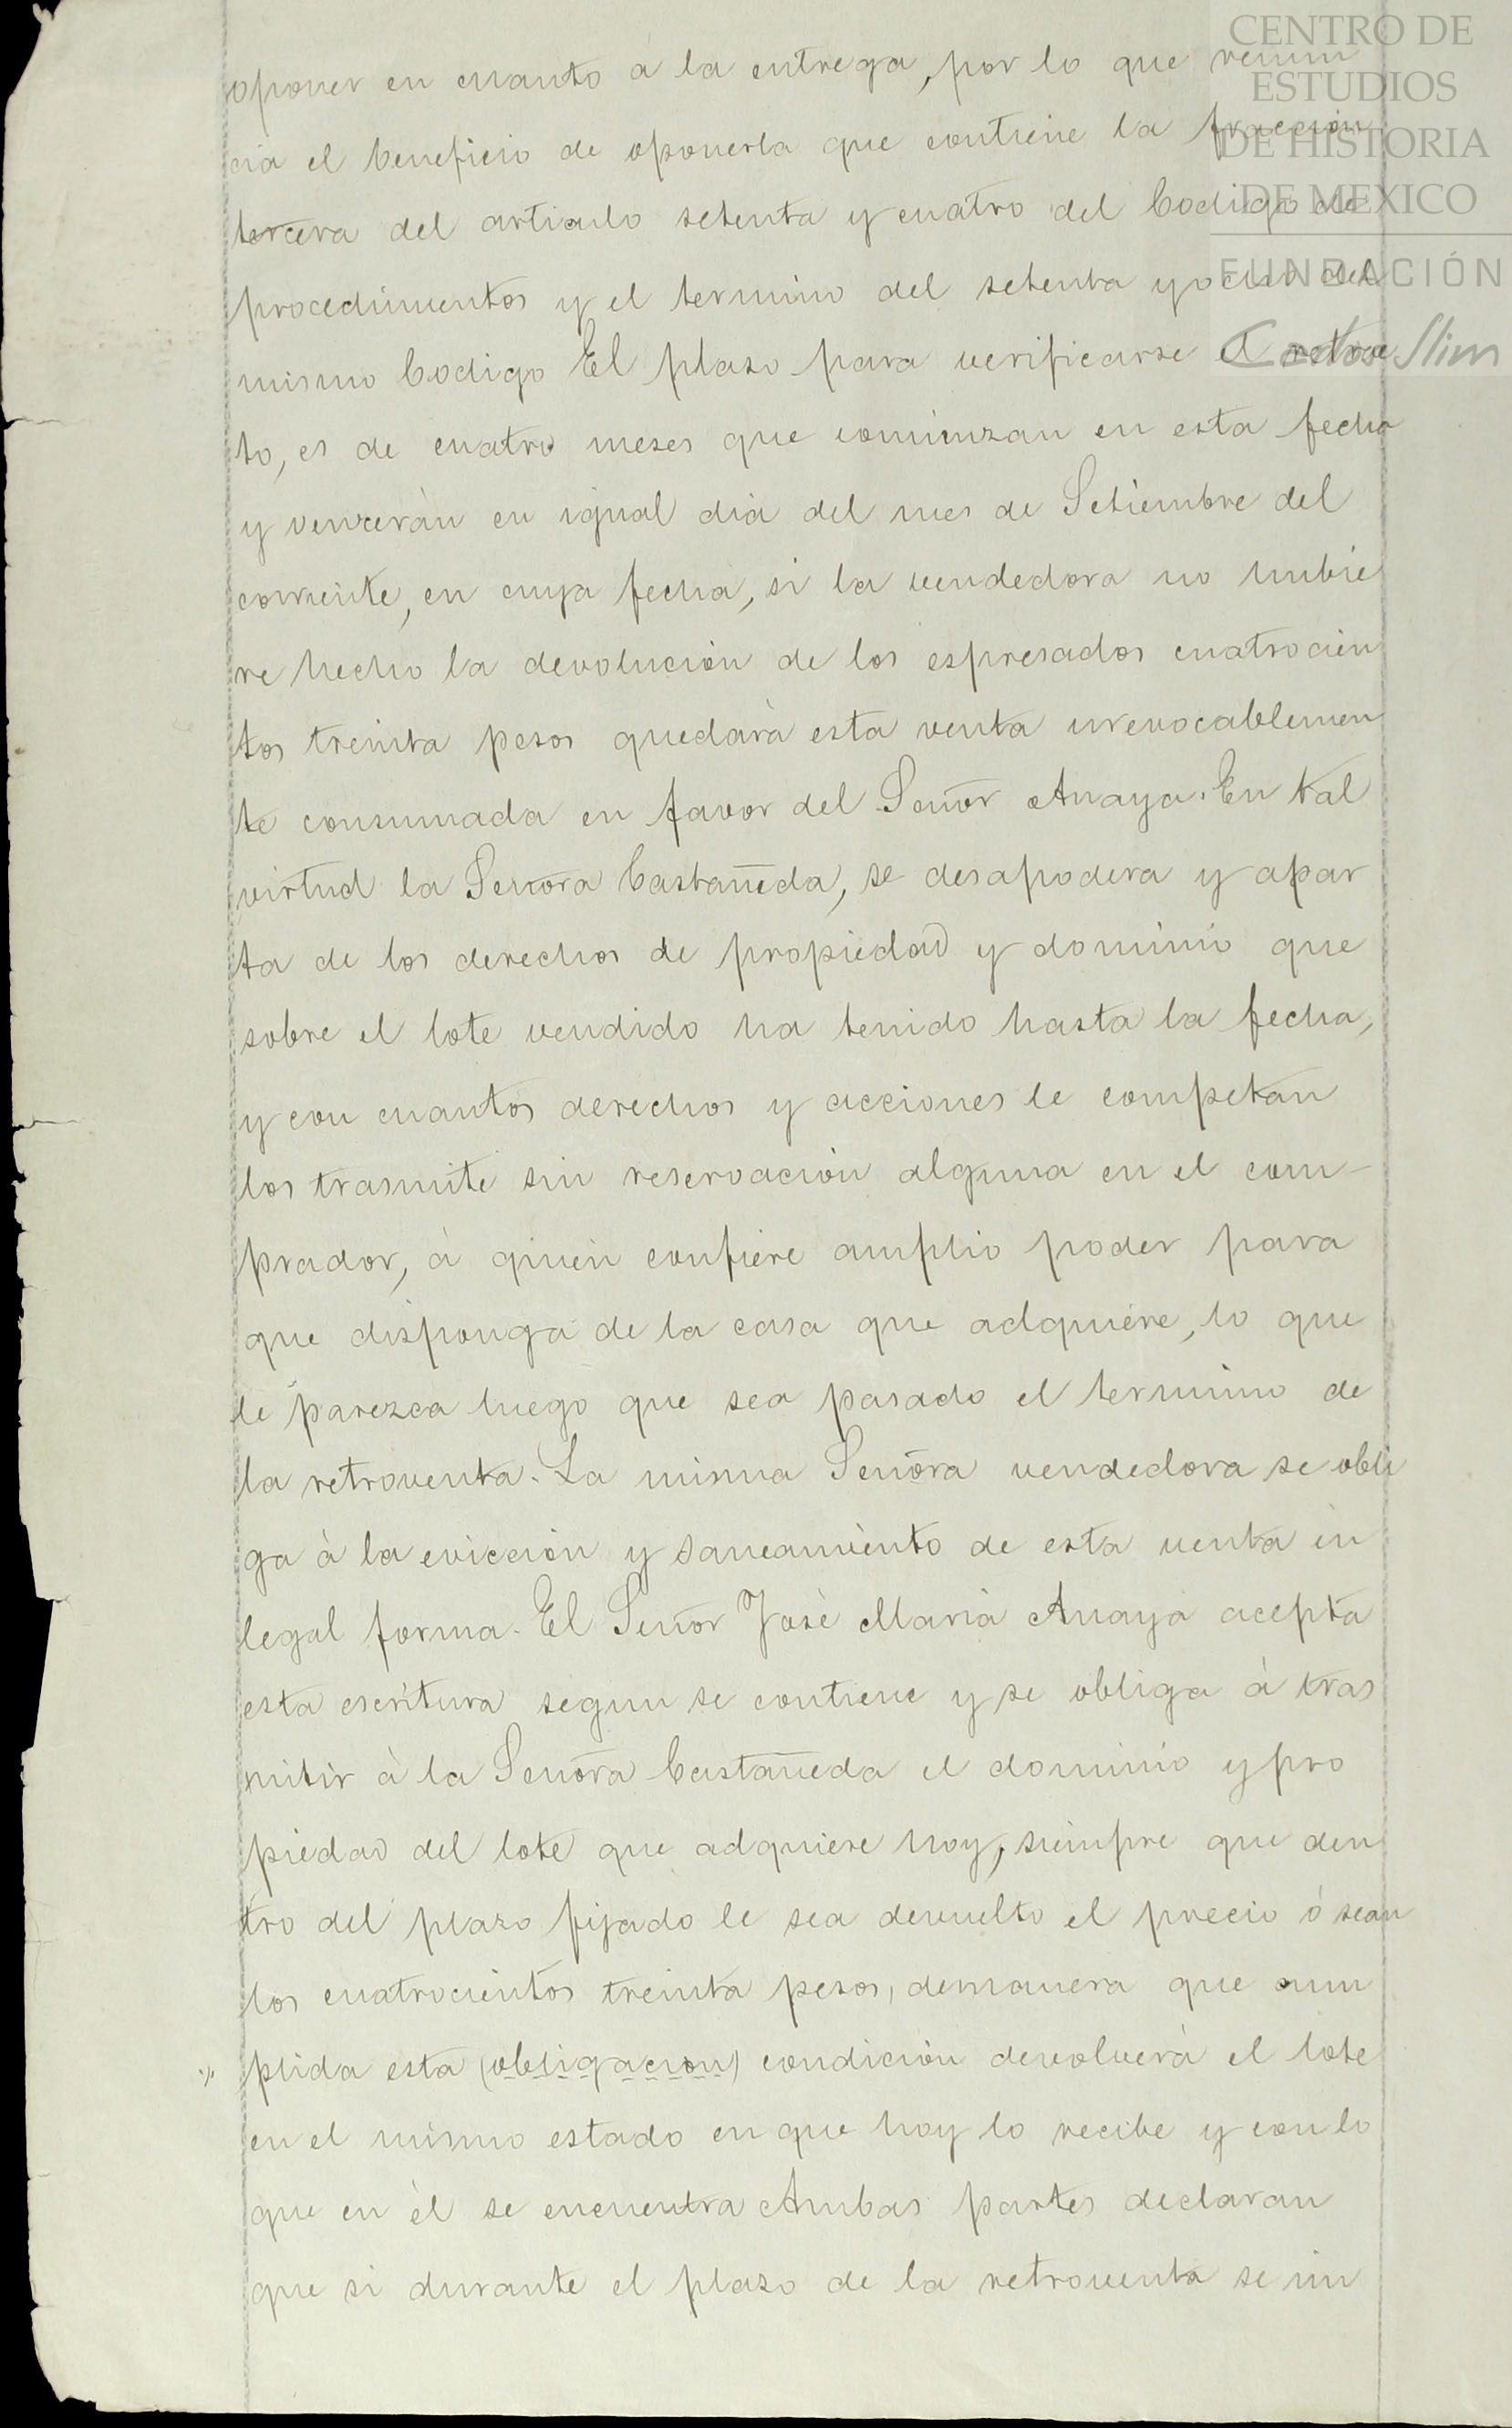 CENTRO DE
ESTUDIOS
DE HISTORIA
DE MEXICO
FUNDACIÓN
Carlos Slim
oponer en cuanto á la entrega, por lo que renun
cia el beneficio de oponerla que contiene la fracción
tercera del articulo setenta y cuatro del Codigo de
procedimientos y el termino del setenta y ocho del
mismo Codigo El plazo para verificarse el retrac
to, es de cuatro meses que comienzan en esta fecha
y vencerán en igual dia del mes de Setiembre del
corriente, en cuya fecha, si la vendedora no hubie
re hecho la devolución de los espresados cuatrocien
tos treinta pesos quedará esta venta irrevocablemen
te consumada en favor del Señor Anaya. En tal
virtud la Señora Castañeda, se desapodera y apar
ta de los derechos de propiedad y dominio que
sobre el lote vendido ha tenido hasta la fecha,
y con cuantos derechos y acciones le competan
los trasmite sin reservación alguna en el com-
prador, á quien confiere amplio poder para
que disponga de la casa que adquiere, lo que
le parezca luego que sea pasado el termino de
la retroventa. La misma Señora vendedora se obli
ga á la evicción y saneamiento de esta venta en
legal forma. El Señor José Maria Anaya acepta
esta escritura segun se contiene y se obliga á tras
mitir á la Señora Castañeda el dominio y pro
piedad del lote que adquiere hoy, siempre que den
tro del plazo fijado le sea devuelto el precio ó sean
los cuatrocientos treinta pesos, demanera que cum
" plida esta (obligacion) condición devolverá el lote
en el mismo estado en que hoy lo recibe y con lo
que en él se encuentra Ambas partes declaran
que si durante el plazo de la retroventa se in